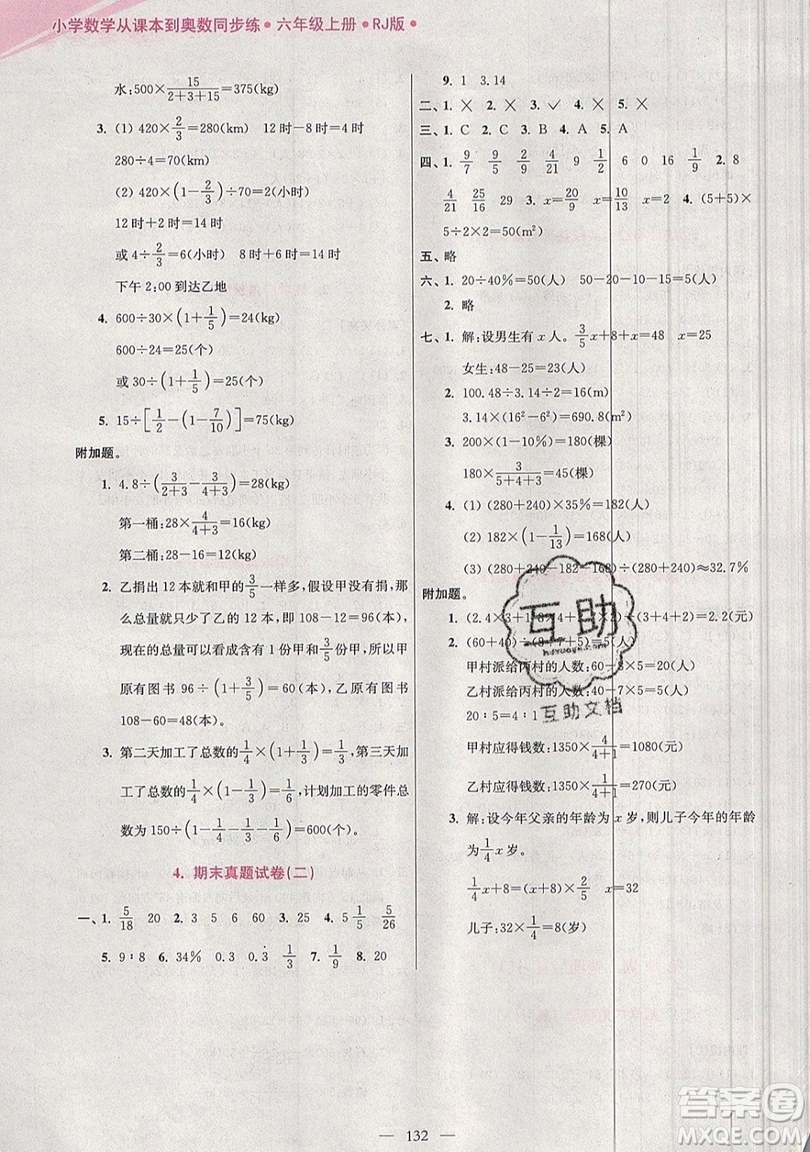 小学数学从课本到奥数同步练●六年级上册●RJ版●
水:500×15/(2+3+15)=375(kg)
3. (1) 420×2/3=280(km) 12时-8时=4时
280÷4=70(时)
(2) 420×(1-2/3)÷70=2(小时)
12时+2时=14时
或4÷2/3=6(小时) 8时+6时=14时
下午2:00到达乙地
4. 600÷30×(1+1/5)=24(kg)
600÷24=25(个)
或30÷(1+1/5)=25(个)
5. 15÷[1/2-(1-7/10)]=75(kg)
附加题。
1. 4.8÷(3/(2+3)-3/(4+3))=28(kg)
第一桶:28×4/(4+3)=16(kg)
第二桶:28-16=12(kg)
2. 乙捐出12本就和甲的3/5一样多,假设甲没有捐,那
么总量就只少了乙的12本,即108-12=96(本),
现在的总量可以看成含有1份甲和3/5份甲,所以甲
原有图书96÷(1+3/5)=60(本),乙原有图书
108-60=48(本)。
3. 第二天加工了总数的1/4×(1+1/3)=1/3,第三天加
工了总数的1/4×(1-1/3)=1/6,计划加工的零件总
数为150÷(1-1/4-1/3-1/6)=600(个)。
4. 期末真题试卷(二)
一、1. 5/18 20 2. 3 5 6 60 3. 25 4. 5 1/5 5/26
5. 9∶8 6. 34% 0.3 0.3 1/3 7. 1/9 8. 20
9. 1 3.14
二、1. × 2. × 3. ✓ 4. × 5. ×
三、1. C 2. C 3. B 4. A 5. A
四、1. 9/7 9/5 2/9 4/21 9 1/2 6 0 16 2. 8
4/21 25/16 29 3. x=20/9 x=13/20 x=2 4. (5+5)×
5÷2×2=50(m²)
五、略
六、1. 20÷40%=50(人) 50-20-10-15=5(人)
2. 略
七、1. 解:设男生有x人。3/5x+8+x=48 x=25
女生:48-25=23(人)
2. 100.48÷3.14÷2=16(m)
3.14×(16²-6²)=690.8(m²)
3. 200×(1-10%)=180(棵)
180×3/(5+4+3)=45(棵)
4. (1) (280+240)×35%=182(人)
(2) 182×(1-1/13)=168(人)
(3) (280+240-182-168)÷(280+240)≈32.7%
附加题。
÷(3+4+2)=2.2(元)
甲村派给丙村的人数:60-8×5=20(人)
乙村派给丙村的人数:40-7×5=5(人)
20∶5=4∶1
甲村应得钱数:1350×4/(4+1)=1080(元)
乙村应得钱数:1350×1/(4+1)=270(元)
3. 解:设今年父亲的年龄为x岁,则儿子今年的年龄
为1/4x岁。
1/4x+8=1/2x x=32
儿子:32×1/4=8(岁)
互助
互助文档
132
答案圈
MXQE.COM